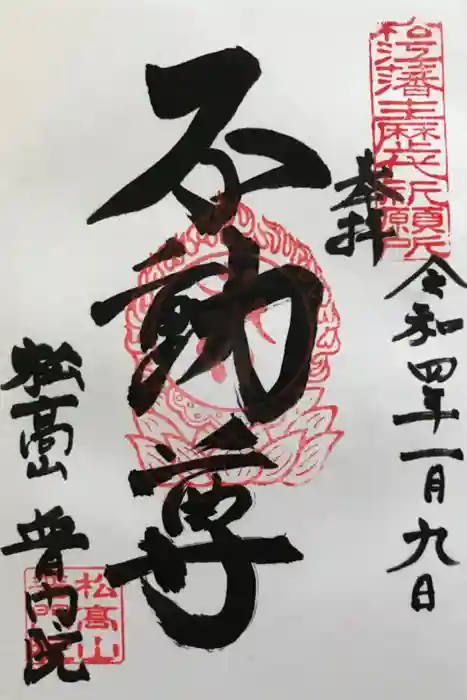 松江藩主歴代祈願所
奉拝
令和四年一月九日
不動尊
松高山
普門院
松高山
普門院